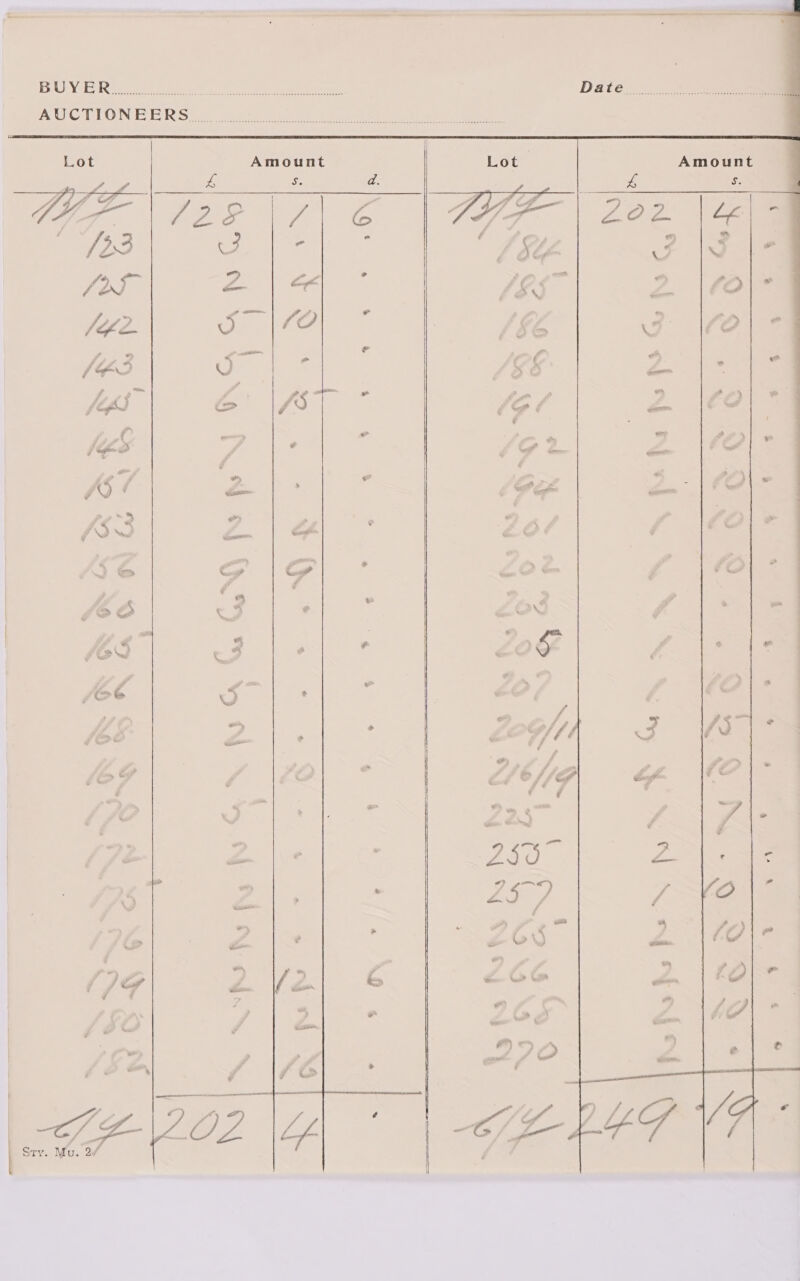 BUYER Date
AUCTIONEERS
Lot Amount Lot Amount
£ s. d. £ s.
B/F 128 1 6 B/F 202 4 -
123 3 - - 184 3 3 -
125 2 4 - 185 2 10 -
142 5 10 - 186 3 10 -
143 5 - - 188 2 - -
145 6 15 - 191 2 10 -
148 7 - - 192 2 10 -
151 2 - - 194 2 10 -
153 2 4 - 201 1 10 -
156 9 9 - 202 1 10 -
160 3 - - 203 1 - -
165 3 - - 205 1 - -
166 5 - - 207 1 10 -
168 2 - - 209/11 3 15 -
169 1 10 - 216/19 4 10 -
170 5 - - 225 1 7 -
172 2 - - 253 2 - -
175 2 - - 257 1 10 -
176 2 - - 265 2 10 -
179 2 12 6 266 2 10 -
180 1 2 - 268 2 10 -
182 1 16 - 270 2 - -
C/F 202 4 - C/F 249 19 -
Sty. Mu. 2/